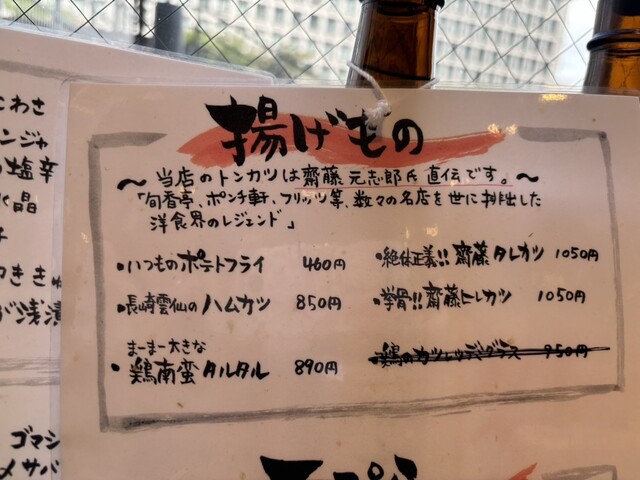 揚げもの
~当店のトンカツは齋藤元志郎氏直伝です。~
「旬香亭、ポンチ軒、フリッツ等、数々の名店を世に排出した
洋食界のレジェンド」
・いつものポテトフライ 460円
・長崎雲仙のハムカツ 850円
まーまー大きな
・鶏南蛮タルタル 890円
・絶体正義!!齋藤タレカツ 1050円
・拳骨!!齋藤ヒレカツ 1050円
・鶏のカツレツデミグラス 950円
こわさ
ンジャ
塩辛
水晶
浅漬
ゴマシ
メサバ